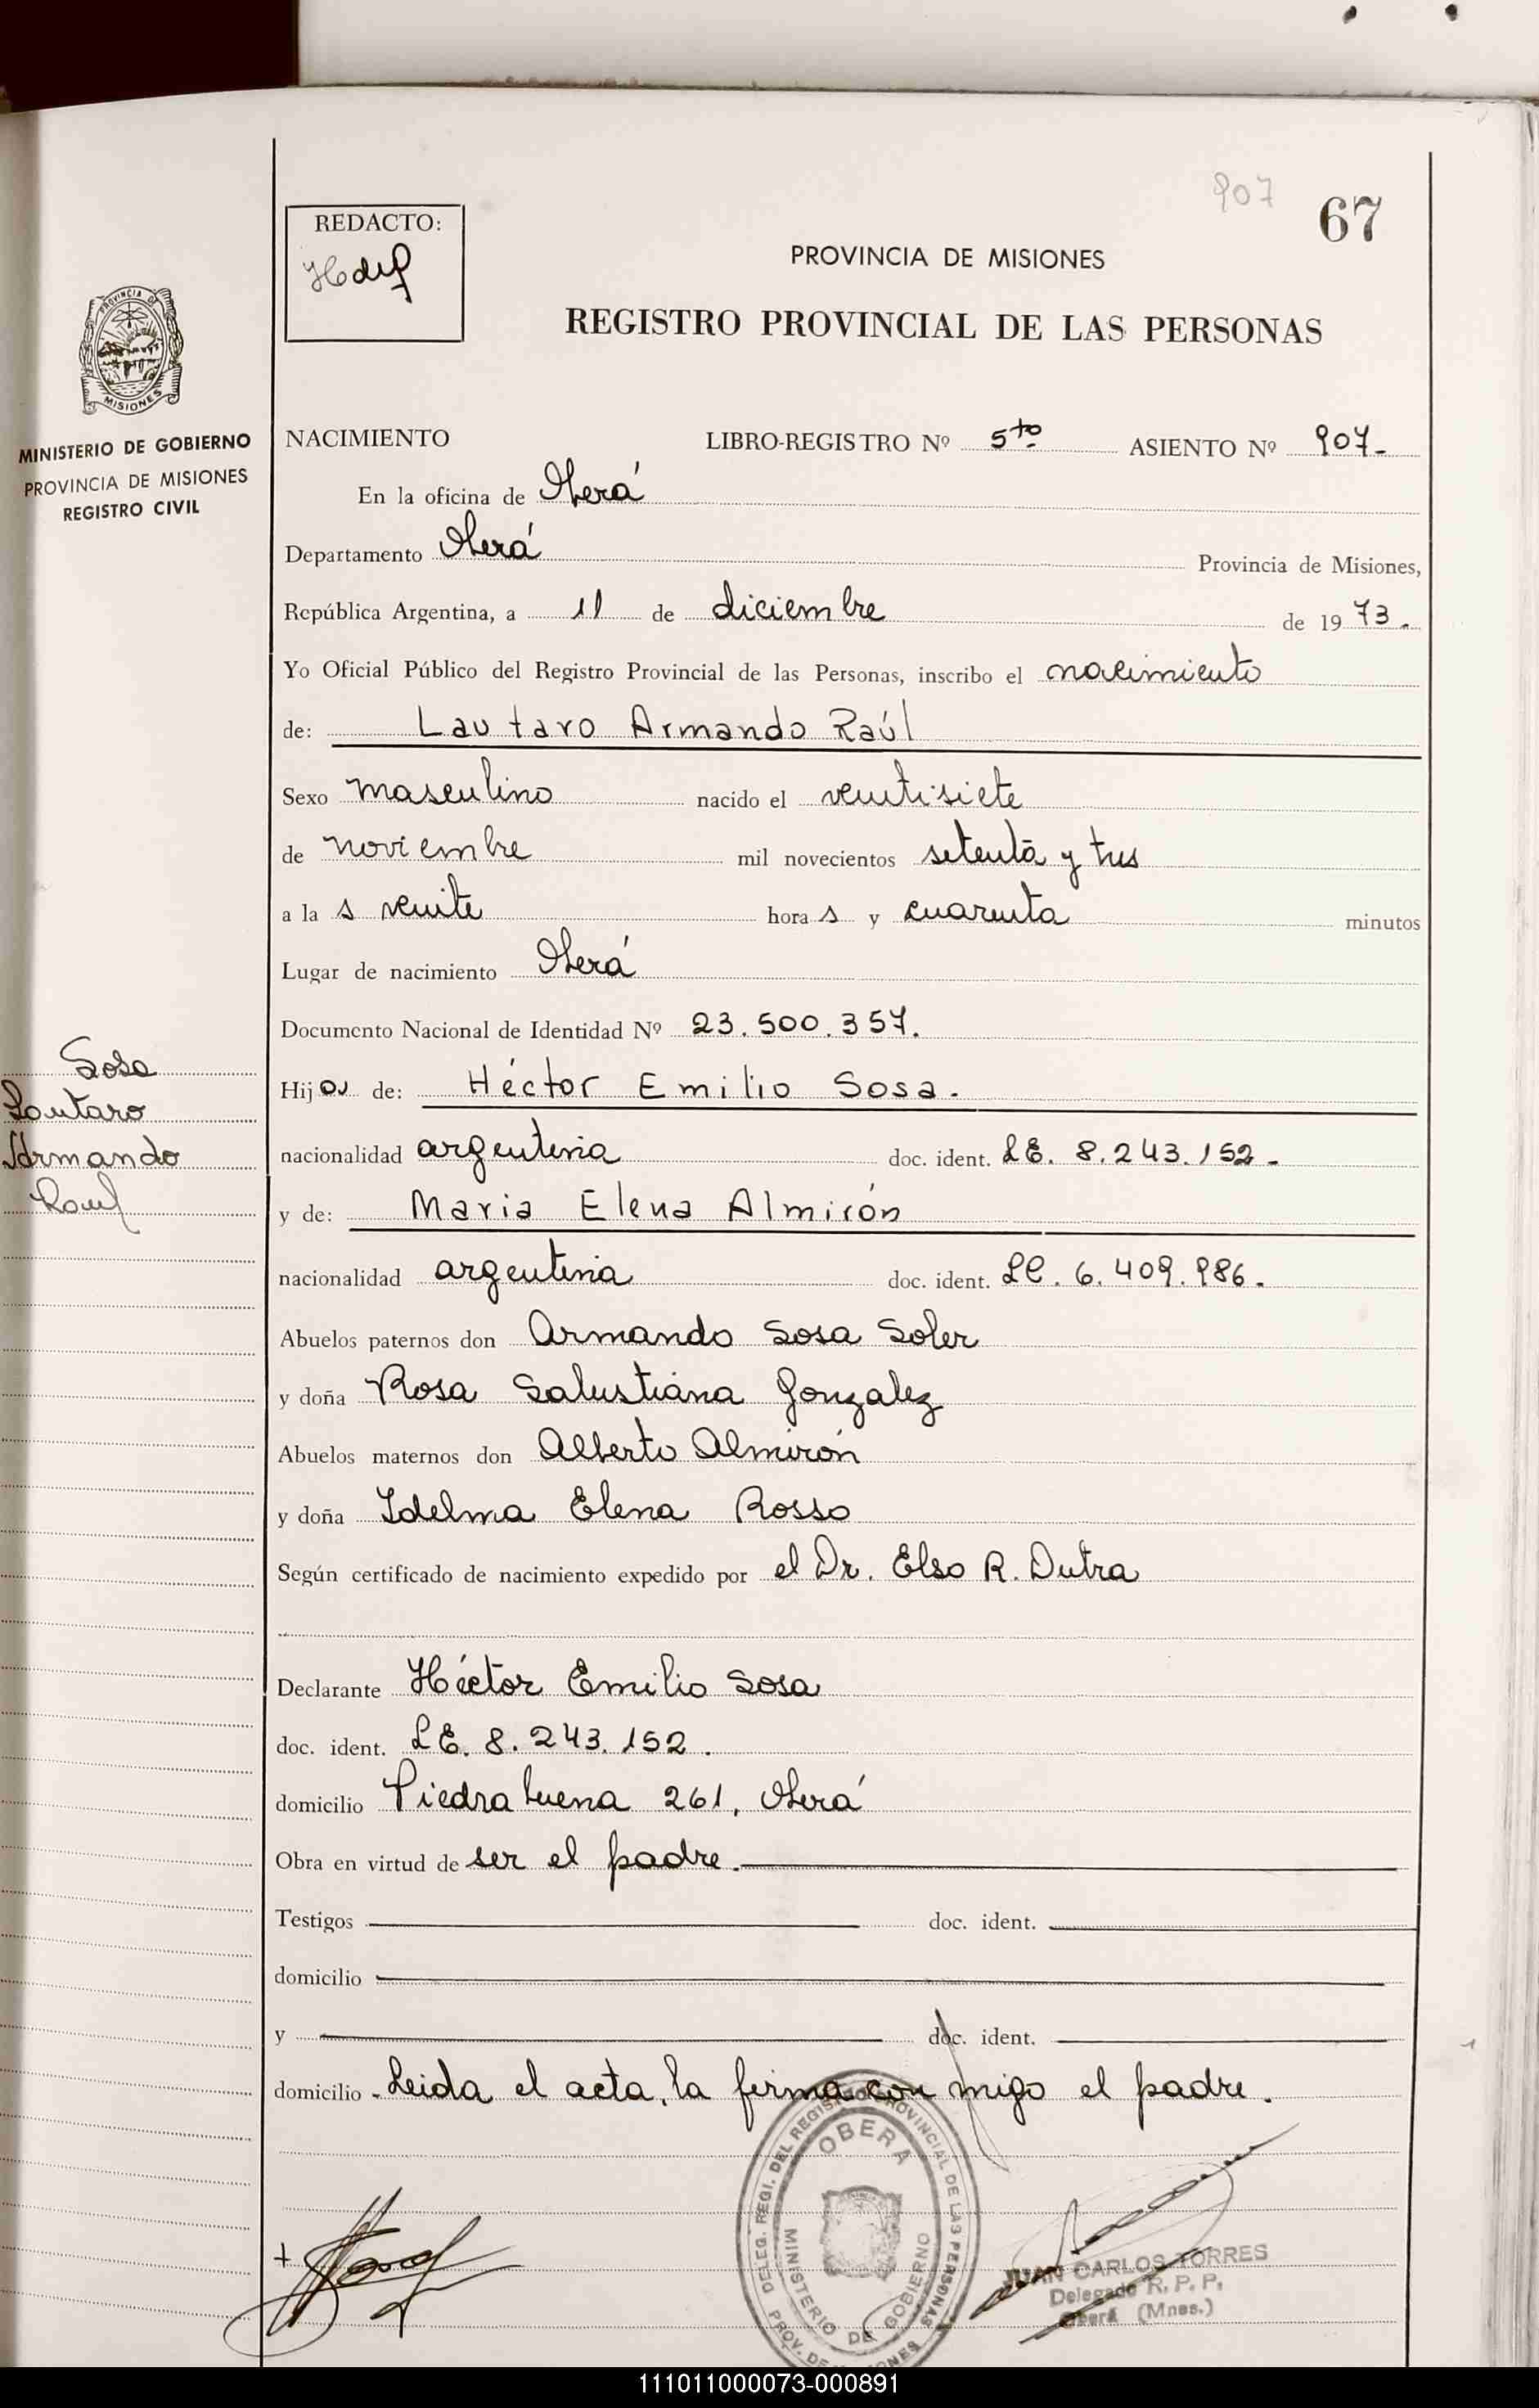 907 67
REDACTO:
PROVINCIA DE MISIONES
REGISTRO PROVINCIAL DE LAS PERSONAS
PROVINCIA DE
MISIONES
MINISTERIO DE GOBIERNO
PROVINCIA DE MISIONES
REGISTRO CIVIL
NACIMIENTO LIBRO-REGISTRO Nº 5to ASIENTO Nº 907-
En la oficina de Oberá
Departamento Oberá Provincia de Misiones,
República Argentina, a 11 de diciembre de 1973.
Yo Oficial Público del Registro Provincial de las Personas, inscribo el nacimiento
de: Lautaro Armando Raúl
Sexo masculino nacido el veintisiete
de noviembre mil novecientos setenta y tres
a la s veinte hora s y cuarenta minutos
Lugar de nacimiento Oberá
Documento Nacional de Identidad Nº 23.500.357.
Sosa
Lautaro
Armando
Raul
Hijo de: Héctor Emilio Sosa.
nacionalidad argentina doc. ident. LE. 8.243.152-
y de: Maria Elena Almirón
nacionalidad argentina doc. ident. LC. 6.409.986.
Abuelos paternos don Armando Sosa Soler
y doña Rosa Salustiana Gonzalez
Abuelos maternos don Alberto Almirón
y doña Idelma Elena Rosso
Según certificado de nacimiento expedido por el Dr. Elso R. Dutra
Declarante Héctor Emilio Sosa
doc. ident. LE. 8.243.152.
domicilio Piedrabuena 261, Oberá
Obra en virtud de ser el padre.
Testigos doc. ident.
domicilio
y doc. ident.
domicilio - Leida el acta, la firma con migo el padre.
DELEG. REGI. DEL REGISTRO PROVINCIAL DE LAS PERSONAS
OBERA
MINISTERIO DE GOBIERNO
PROV. DE MISIONES
JUAN CARLOS TORRES
Delegado R. P. P.
Oberá (Mnes.)
111011000073-000891